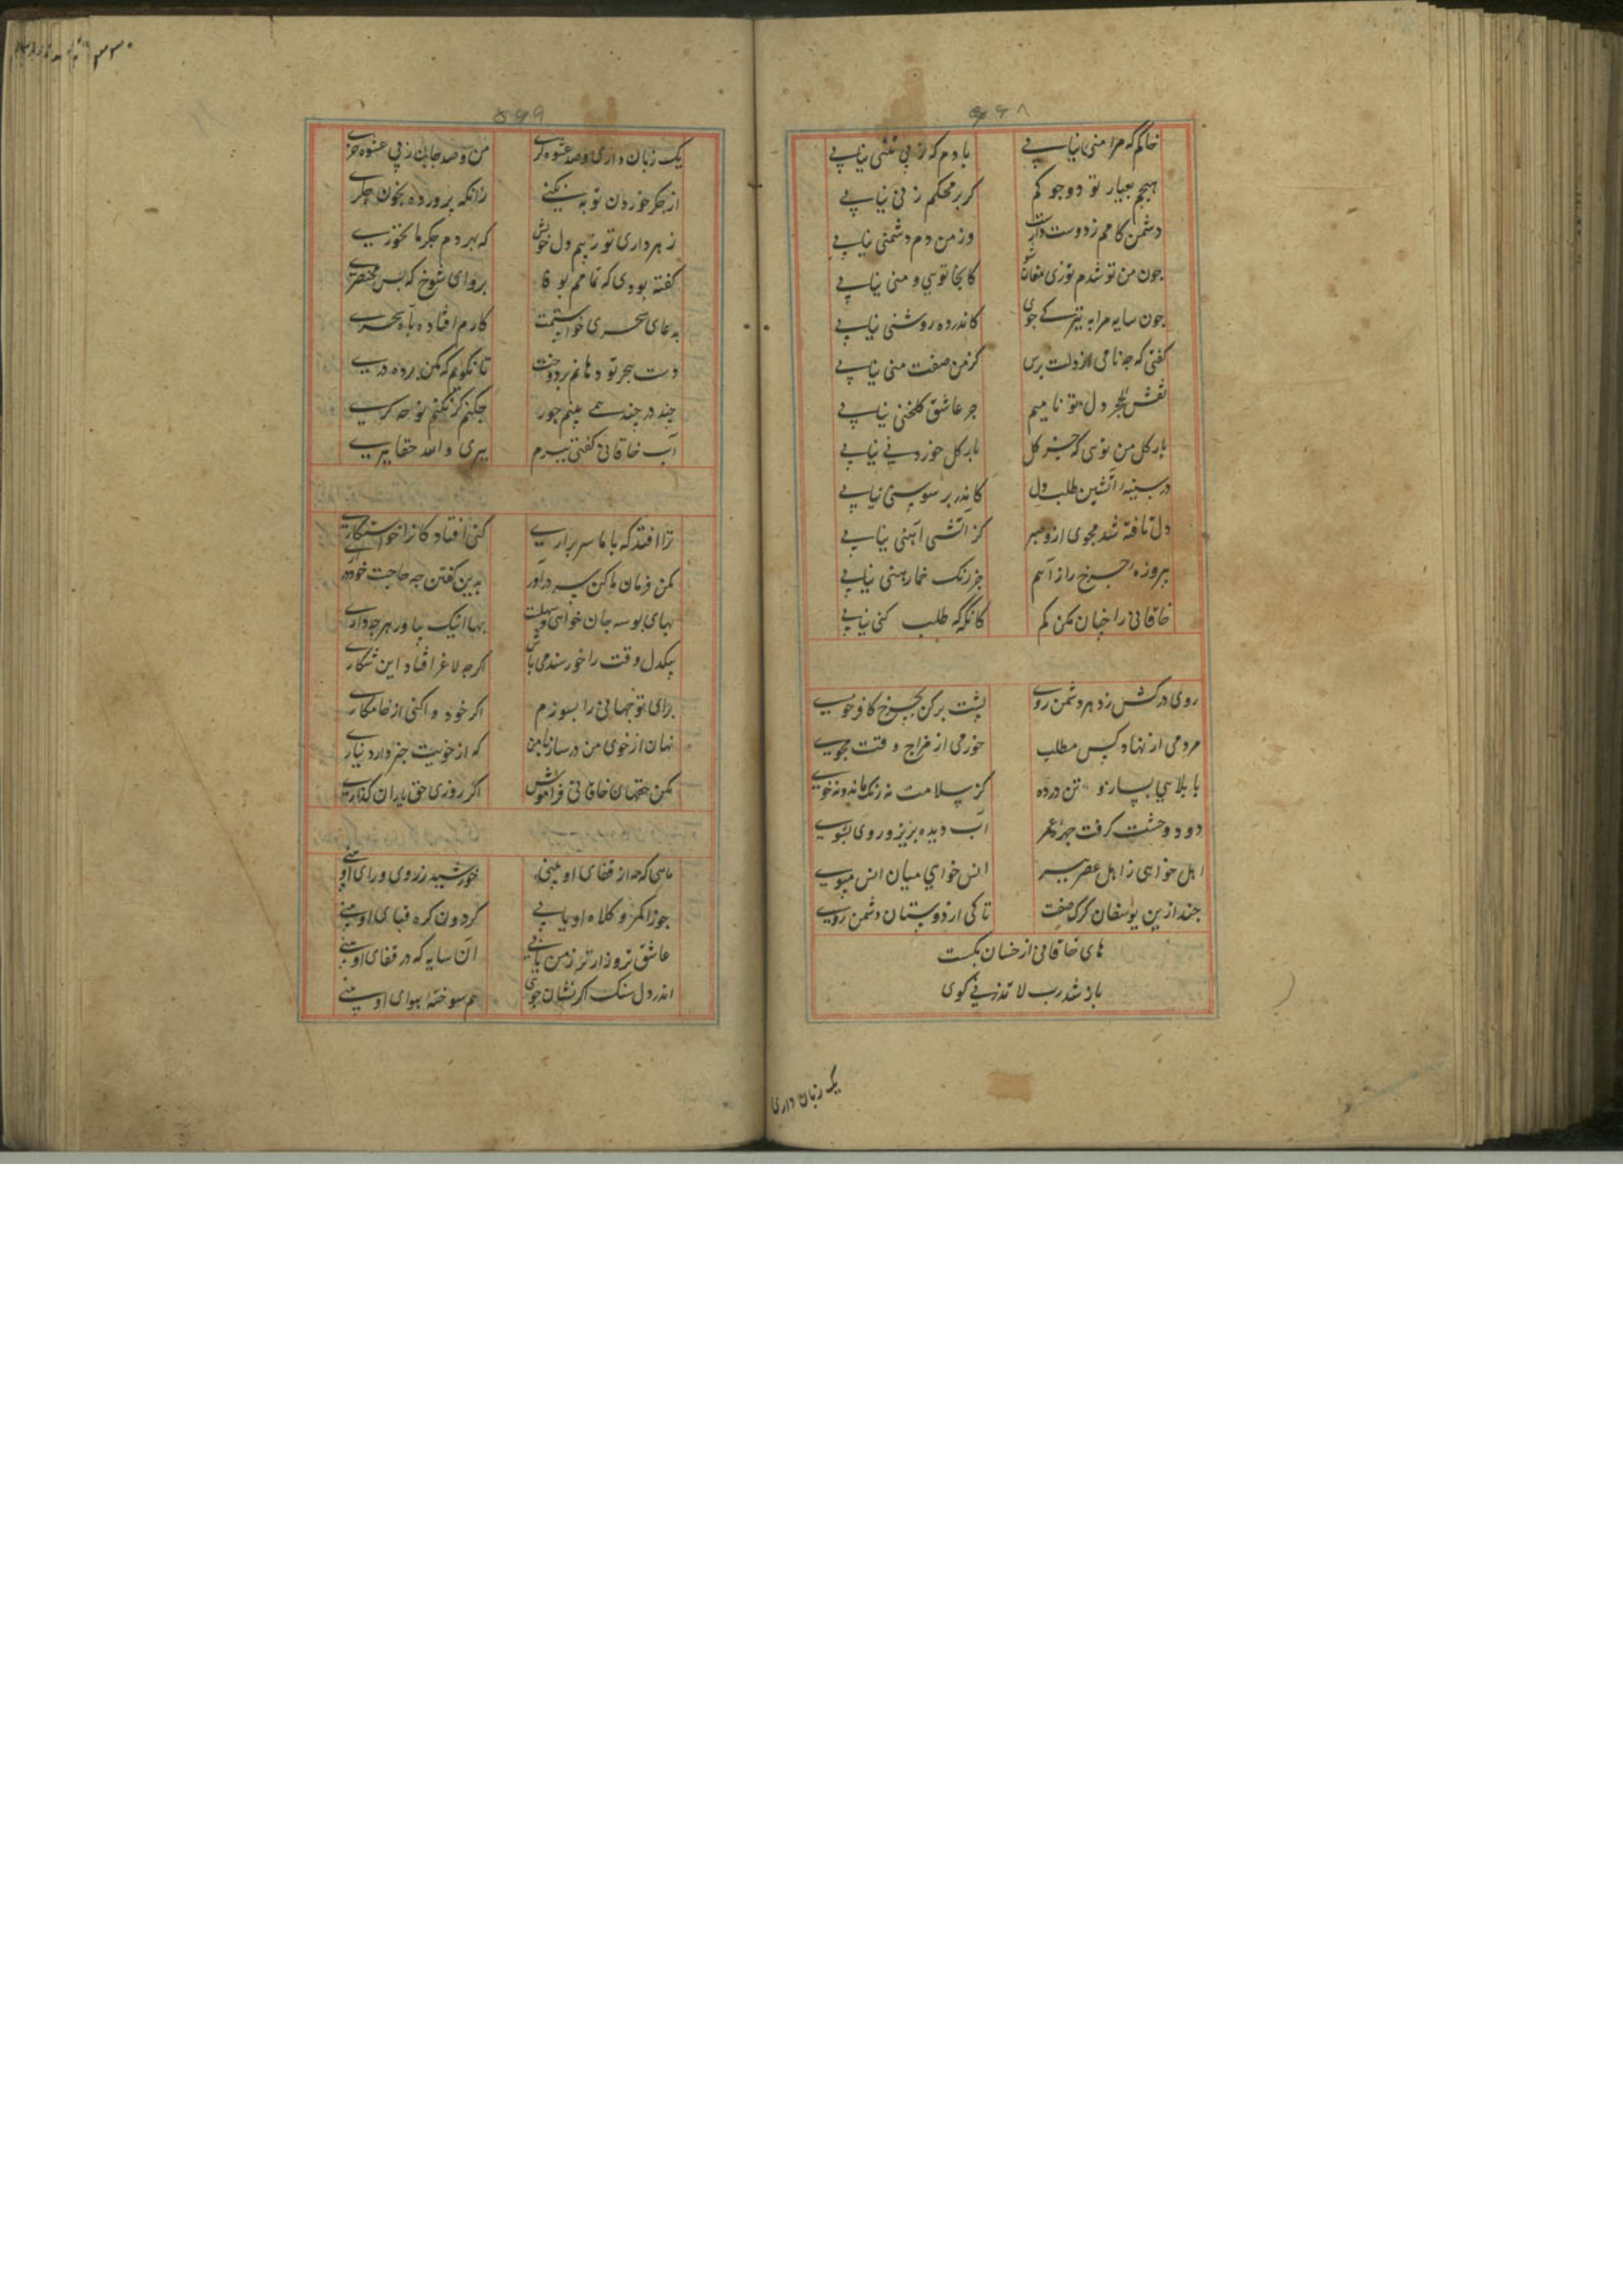 ۵۶۸
خاکم که مرا منی نیابی بادم که ز پی تنی نیابی
هیچم بعیار تو دو جو کم کر بر محکم زنی نیابی
دشمن کامم ز دوست داریت وز من دم دشمنی نیابی
جون من تو شدم تو زی مغان شو کانجا تویی و منی نیابی
جون سایه مرا به تیرکی جوی کاندر ده روشنی نیابی
کفتی که جه نامی از دلت برس کز من صفت منی نیابی
نقش دل تو نامیم جز عاشق کلخنی نیابی
بار کل من تویی که جز کل بار کل خوردنی نیابی
در سینه آتشین طلب دل کاندر بر سوسنی نیابی
دل تافته شد مجوی ازو صبر کز آتشی آهنی نیابی
بیروزه جرخ را ز آهم جز رنک خماهنی نیابی
خاقانی را جنان مکن کم کانکه که طلب کنی نیابی
روی درکش ز دهر دشمن روی بشت برکن بجرخ کافر خوی
مردمی از نهاد کس مطلب خرمی از مزاج وقت مجوی
با بلاها بساز و تن در ده کز سلامت نه رنک ماند و نه خوی
دود وحشت کرفت جهره عمر آب دیده بریز و روی بشوی
اهل خواهی ز اهل عصر ببر انس خواهی میان انس مپوی
جند ازین یوسفان کرک صفت تا کی از دوستان دشمن روی
های خاقانی از خسان بکسست
باز شد رب لا تذرنی کوی
یک زبان داری
۵۶۹
یک زبان داری و صد عشوه کری من و صد جان ز پی عشوه خری
از جکر خوردن توبه نکنی زانکه پرورده بخون جکری
زهر داری تو ز بیم دل خویش که بهر دم جکر ما بخوری
کفته بودی که تمامم بوفا برو ای شوخ که بس مختصری
به دعای سحری خواستمت کارم افتاد به آه سحری
دست هجر تو دهانم بر دوخت تا نکویم که مکن پرده دری
جند در جند همی بینم جور جکنم کر نکنم نوحه کری
آب خاقانی کفتی ببرم ببری والله حقا ببری
ترا افتد که با ما سر براری کنی افتادکان را خواستکاری
مکن فرمان ما کن سر درآور بدین کفتن جه حاجت خود درآری
بهای بوسه جان خواهی و سهلست بها اینک بیاور هرجه داری
بیکدل وقت را خورسند می باش اکرجه لاغر افتاد این شکاری
برای تو جهانی را بسوزم اکر خود واکنی از خامکاری
نهان از خوی من در ساز با من که از خویت خبر دارد نیاری
مکن حقهای خاقانی فراموش اکر روزی حق یاران کذاری
ماهی که مه از قفای او بینی خورشید ز روی و رای او بینی
جوزا کمر و کلاه او یابی کردون کره قبای او بینی
عاشق تر و زارتر ز من یابی آن سایه که در قفای او بینی
اندر دل سنک اکر نشان جوی هم سوخته هوای او بینی